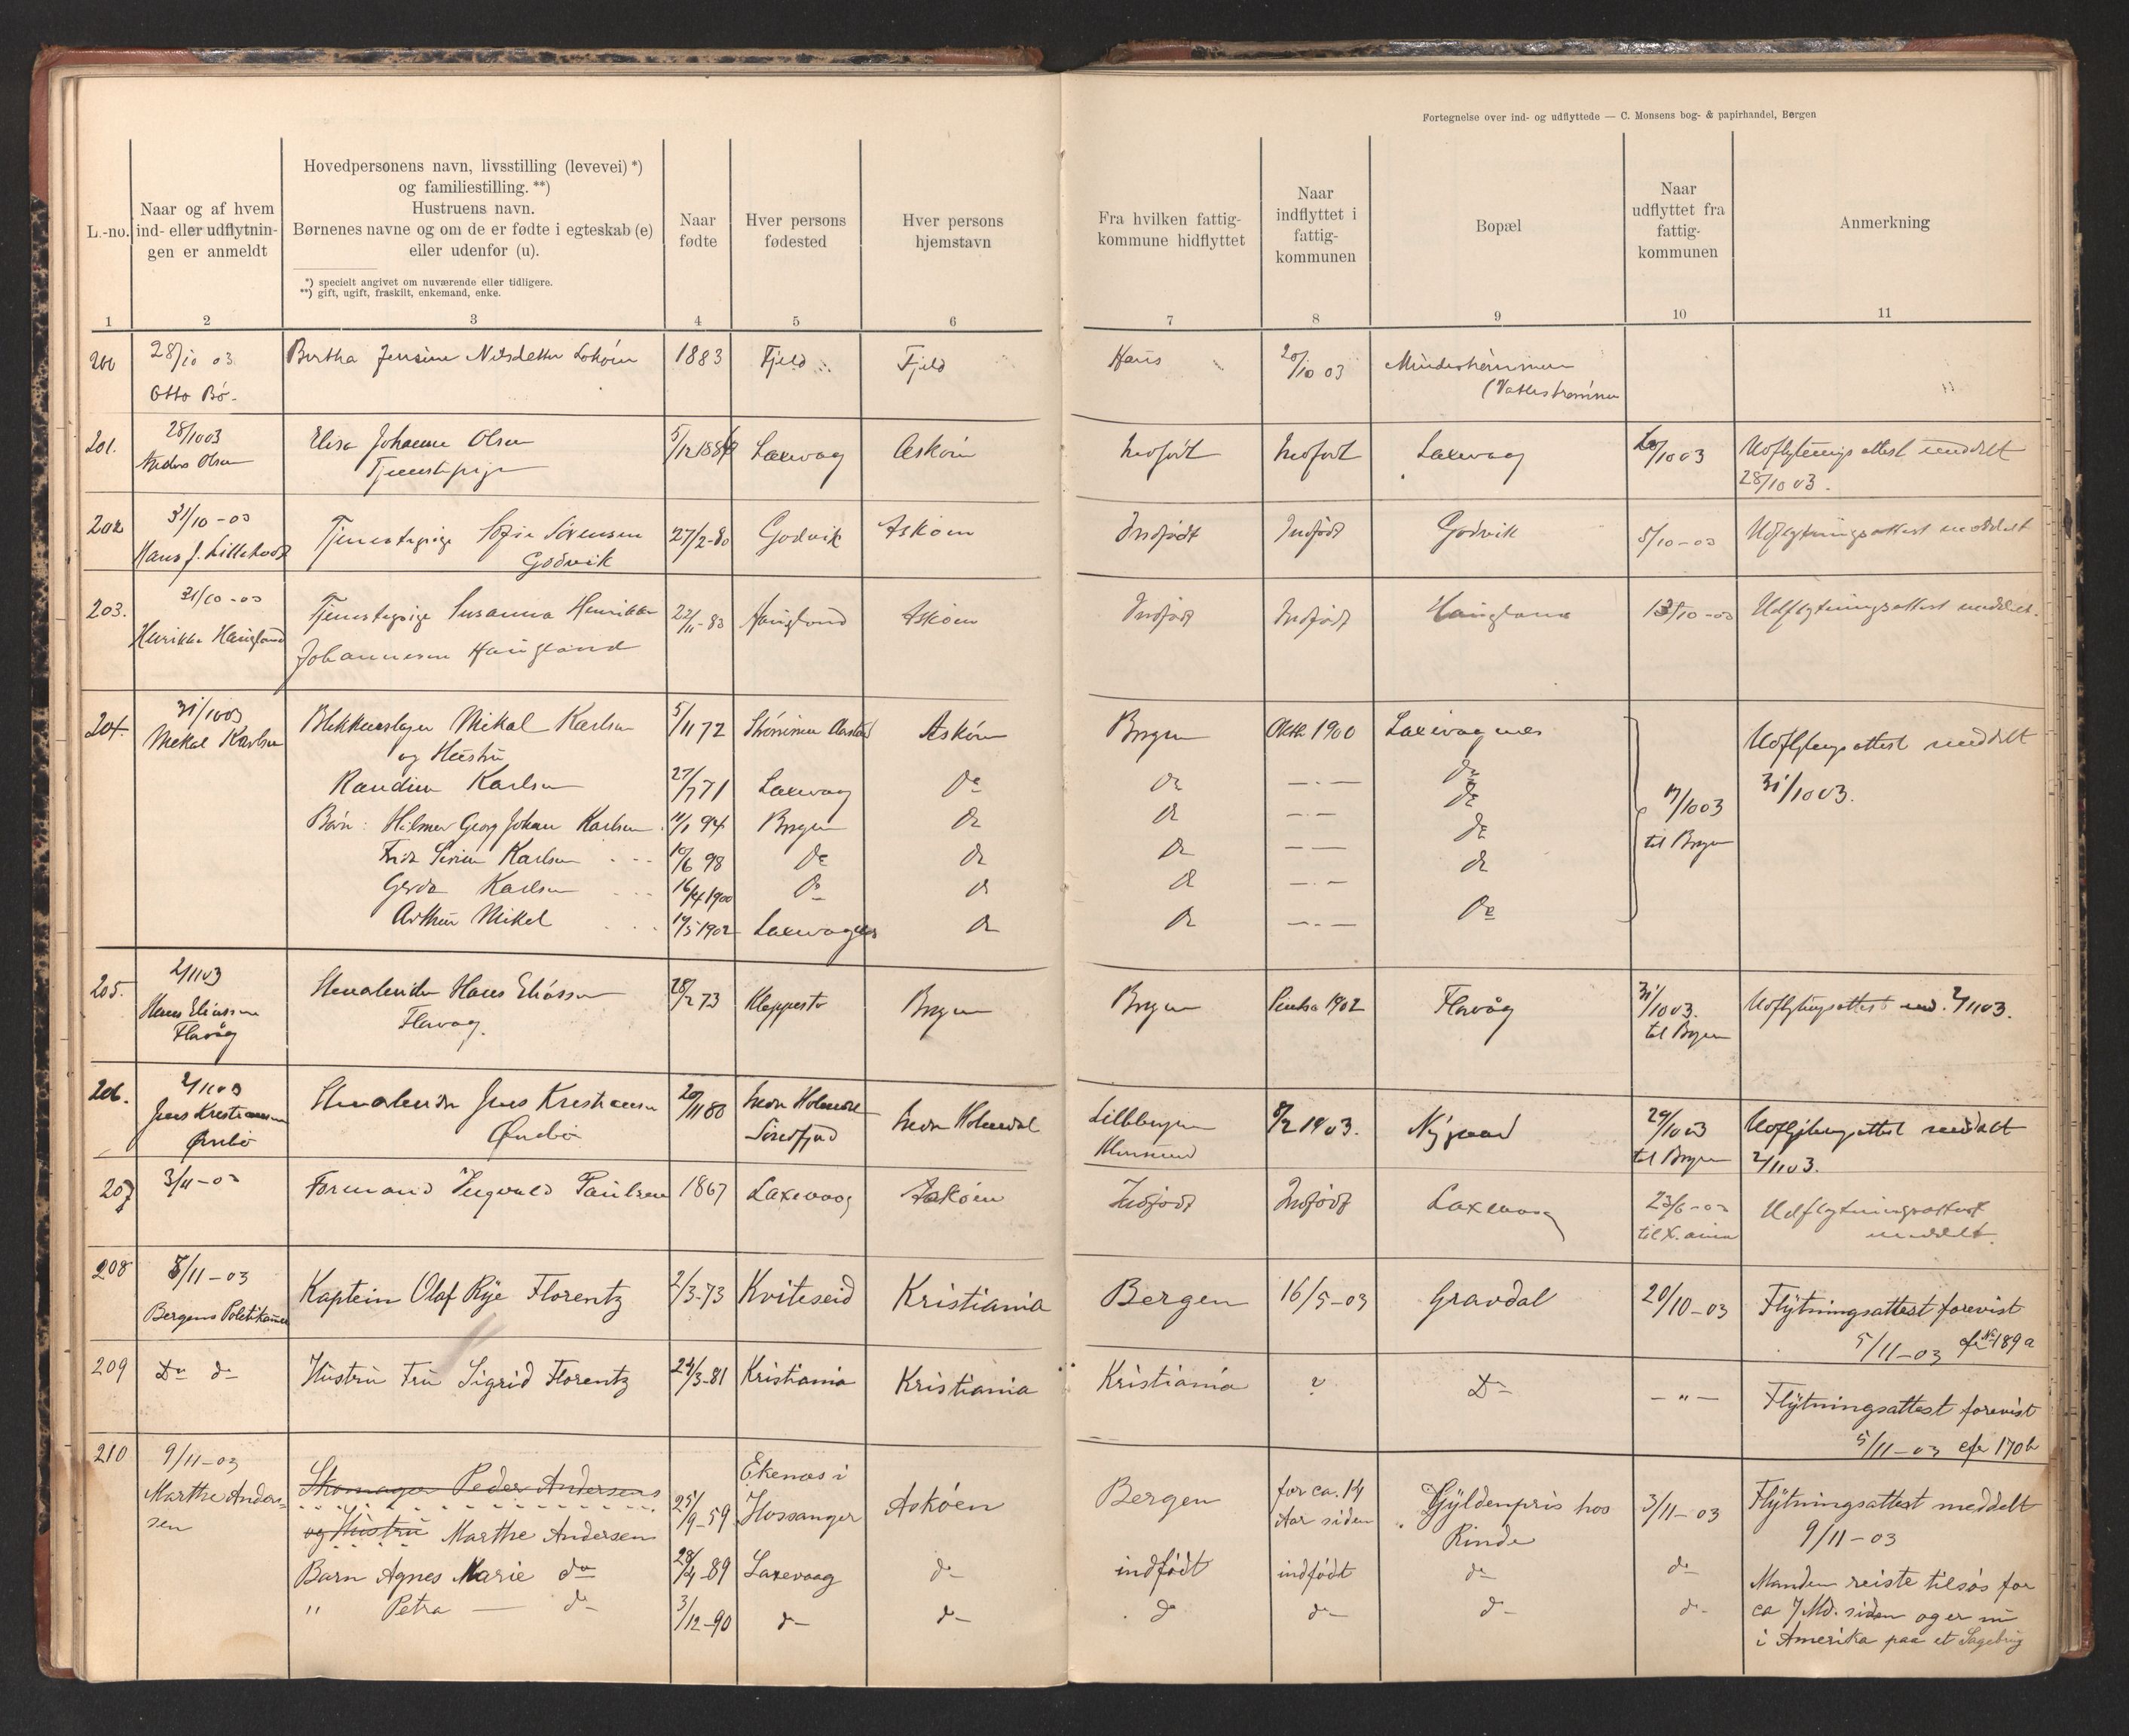 Fortegnelse over ind- og udflyttede — C. Monsens bog- & papirhandel, Bergen
L.-no.
Naar og af hvem
ind- eller udflytnin-
gen er anmeldt
Hovedpersonens navn, livsstilling (levevei) *)
og familiestilling. **)
Hustruens navn.
Børnenes navne og om de er fødte i egteskab (e)
eller udenfor (u).
*) specielt angivet om nuværende eller tidligere.
**) gift, ugift, fraskilt, enkemand, enke.
Naar
fødte
Hver persons
fødested
Hver persons
hjemstavn
Fra hvilken fattig-
kommune hidflyttet
Naar
indflyttet i
fattig-
kommunen
Bopæl
Naar
udflyttet fra
fattig-
kommunen
Anmerkning
1 2 3 4 5 6 7 8 9 10 11
200 28/10 03 Bertha Jensine Nilsdatter 1883 Fjeld Fjeld Haus 20/10 03
Otto Bö.
201. 28/10 03 Elisa Johanne Olsen 5/12 188 Laxevaag Askøen Indfödt Indfödt Laxevaag /10 03 Udflytningsattest meddelt
Anders Olsen Tjenestepige 28/10 03.
202 31/10-03 Tjenestepige Sofie Sörensen 27/2-80 Godvik Askøen Indfödt Indfödt Godvik 5/10-03 Udflytningsattest meddelt
Hans J. Godvik
203. 31/10-03 Tjenestepige Susanna Henrikke 22/11-83 Haugland Askøen Indfödt Indfödt Haugland /10-03 Udflytningsattest meddelt.
Henrikke Haugland Johannesen Haugland
204. 31/10 03 Blikkenslager Mikal Karlsen 5/11 72 Askøen Bergen Oktbr 1900 Laxevaagnes Udflytningsattest meddelt
Mekal Karlsen og Hustru 31/10 03.
Randine Karlsen 27/7 71 Laxevaag do do —.— do
Børn: Hilmer Georg Johan Karlsen. 11/1 94 Bergen do do —.— do 17/10 03
Karlsen 10/6 98 do do do — — do til Bergen
Gerda Karlsen 16/4 1900 do do do —.— do
Arthur Mikal 17/5 1902 Laxevagnes do do —.— do
205. 2/11 03 Hans Eliassen 28/2 73 Kleppestø Bergen Bergen 1902 Flavåg 31/10 03. Udflytningsattest med. 2/11 03.
Hans Eliassen Flavag. til Bergen
Flavåg
206. 2/11 03 Jens Kristiansen 20/11 80 Indre Holmedal Indre Holmedal 8/2 1903. Nygaard 29/10 03 Udflytningsattest meddelt
Jens Kristiansen Söndfjord til Bergen 2/11 03.
207 3/11-03 Formand Ingvald Paulsen 1867 Laxevaag Askøen Indfödt Indfödt Laxevaag 23/6-03 Udflytningsattest
meddelt.
208 8/11-03 Kaptein Olaf Rye Florentz 2/3-73 Kviteseid Kristiania Bergen 16/5-03 Gravdal 20/10-03 Flytningsattest forevist
Bergens Politikammer 5/11-03 cfr No 189 a
209 Do do Hustru Fru Sigrid Florentz 24/3-81 Kristiania Kristiania Kristiania ? Do —"— Flytningsattest forevist
5/11-03 cfr 170 b
210 9/11-03 Skomager Peder Andersens Ekenæs i Bergen for ca. 14 Gyldenpris hos 3/11-03 Flytningsattest meddelt
Marthe Anders= 25/9-59 Hossanger Askøen Aar siden Rinde 9/11-03
sen og Hustru Marthe Andersen
Barn Agnes Marie do 28/4-89 Laxevaag do indfödt indfödt do do Manden reiste tilsøs for
" Petra — do 3/12-90 do do do do do do ca 7 Md. siden og er nu
i Amerika paa et Sagebrug